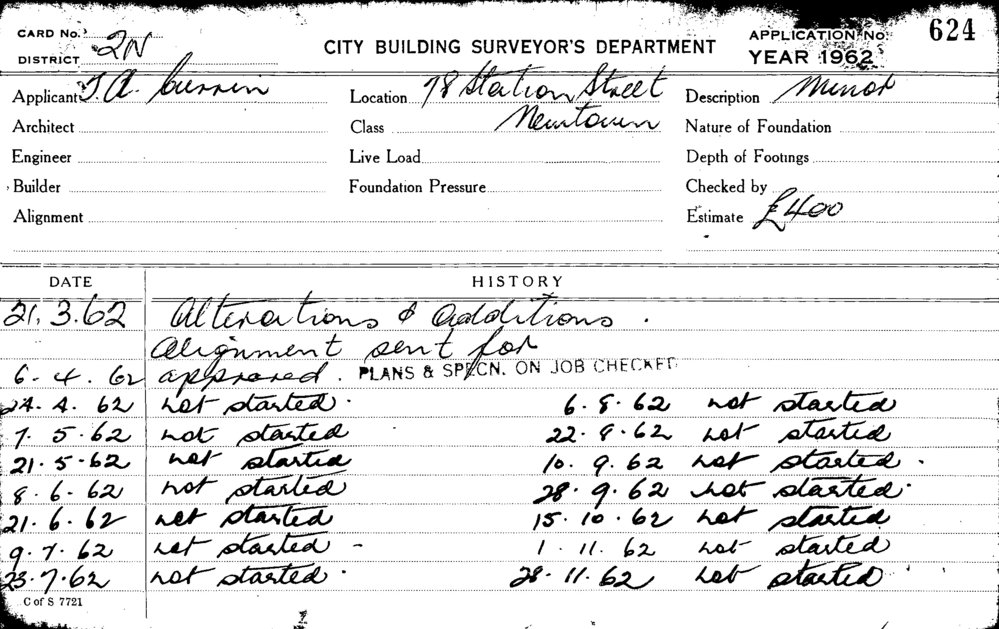 CARD No. CITY BUILDING SURVEYOR'S DEPARTMENT APPLICATION No. 624
DISTRICT 2N YEAR 1962
Applicant J. A. Currin Location 78 Station Street Description Minor
Architect Class Newtown Nature of Foundation
Engineer Live Load Depth of Footings
Builder Foundation Pressure Checked by
Alignment Estimate £400
DATE HISTORY
21.3.62 Alterations & additions.
Alignment sent for
6.4.62 approved. PLANS & SPECN. ON JOB CHECKED
24.4.62 not started. 6.8.62 not started
7.5.62 not started 22.8.62 not started
21.5.62 not started 10.9.62 not started.
8.6.62 not started 28.9.62 not started.
21.6.62 not started 15.10.62 not started
9.7.62 not started - 1.11.62 not started
23.7.62 not started. 28.11.62 not started
C of S 7721